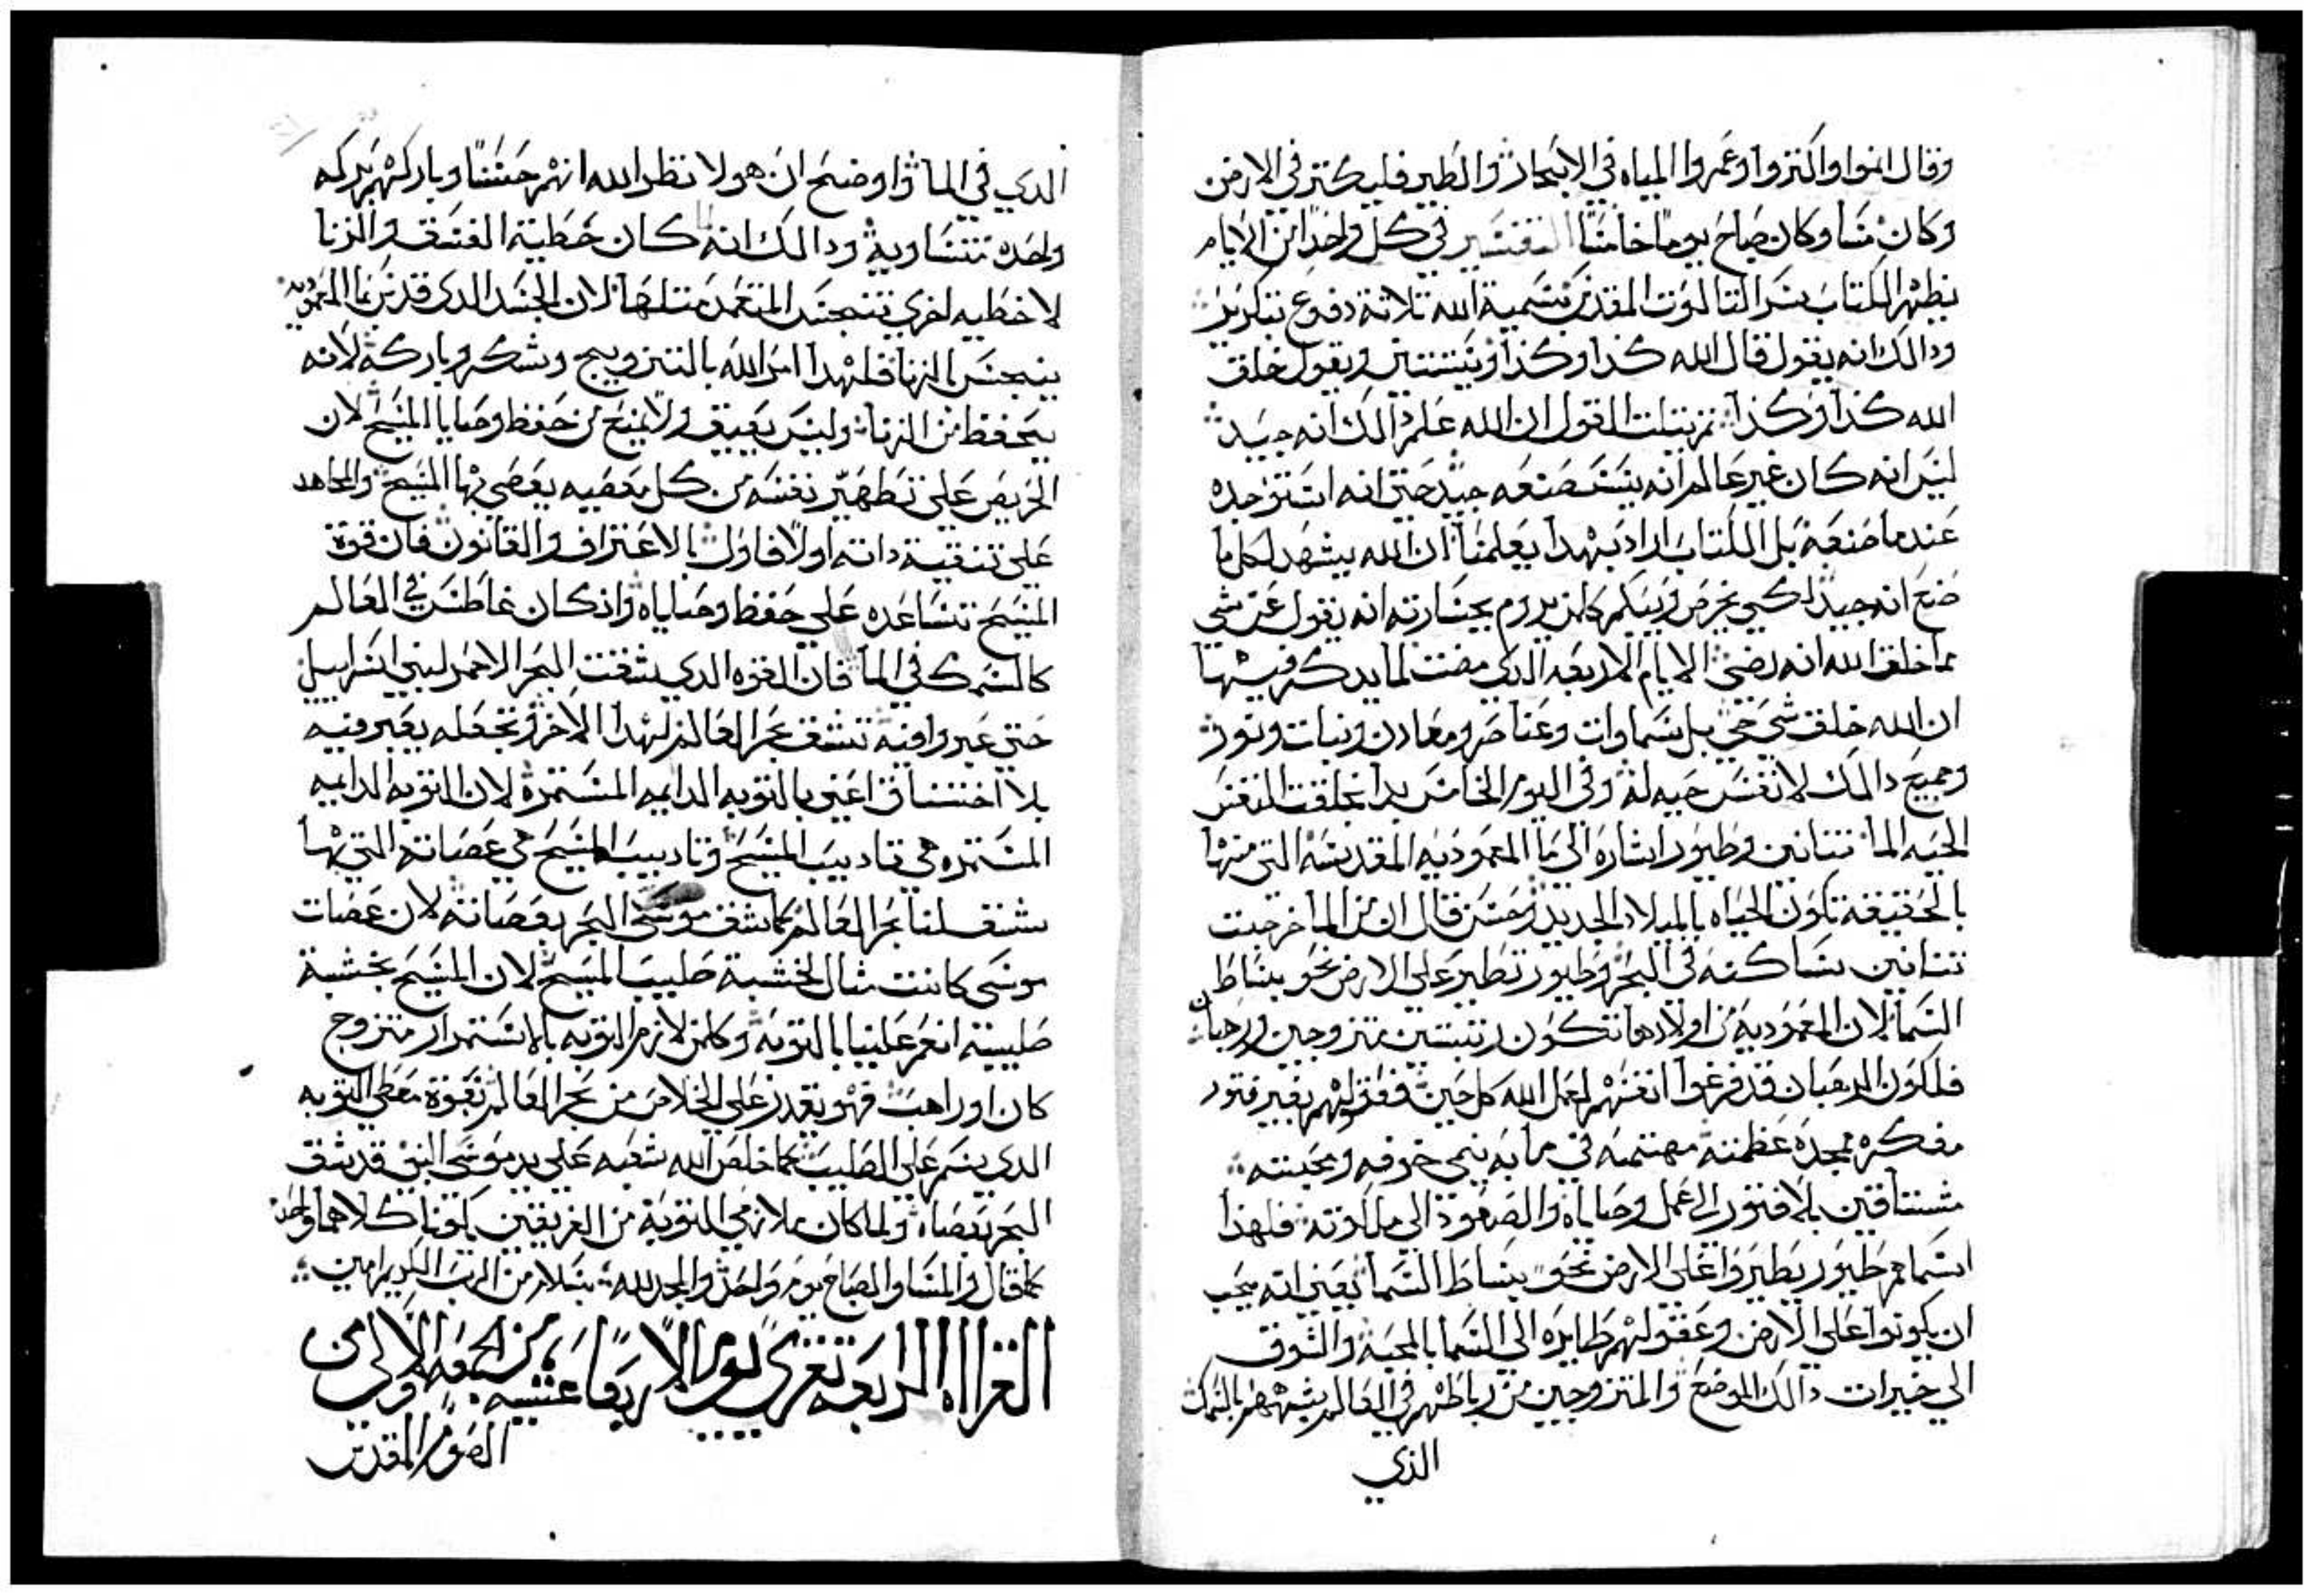 وقال انموا واكتروا وعمروا المياه في الابحار والطير فليكتر في الارض
وكان مسا وكان صباح يوما خامسا التفسير في كل واحدا من الايام
يظهر الكتاب سر التالوت المقدس بتسمية الله تلاتة دفوع بتكرير
ودالك انه يقول قال الله كذا وكذا ويتنتنى ويقول خلق
الله كذا وكذا تم يتلت القول ان الله علم دالك انه جيد
ليس انه كان غير عالم انه يستصنعه جيد حتى انه استوجده
عندما صنعه بل الكتاب اراد بهدا يعلمنا ان الله يشهد لكل ما
صنع انه جيد لكي يخرص ويبكم كلمن يروم بجسارته انه يقول عن شي
مما خلق الله انه ردي الايام الاربعه الدي مضت لما يدكر فيها
ان الله خلق شي حي بل سماوات وعناصر ومعادن ونبات ونور
وجميع دالك لا نفس حيه له وفي اليوم الخامس بدا بخلقت النفس
الحيه الما تنانين وطيور اشاره الى ما المعموديه المقدسه التي منها
بالحقيقه تكون الحياه بالميلاد الجديد وحسن قال ان من الما خرجت
تنانين ساكنه في البحر وطيور تطير على الارض نحو بساط
السما لان المعموديه من اولادها تتكون رتبتين متزوجين ورهبان
فلكون الرهبان قد فرغوا انفسهم لعمل الله كل حين فعقولهم بغير فتور
مفكره ممجده عظمته مهتمه في ما به ينمي خوفه ومحبته
مشتاقين بلا فتور الى عمل وصاياه والصعود الى ملكوته فلهذا
اسماهم طيور يطيروا على الارض نحو بساط السما يعني انه يجب
ان يكونوا على الارض وعقولهم طايره الى السما بالمحبه والشوق
الى خيرات دالك الموضع والمتزوجين من رباطهم في العالم يشبههم بالسمك
الذي
الدي في الما واوضح ان هولا نظر الله انهم حسنا وباركهم بركه
واحده متساويه ودالك انه لما كان خطية الفسق والزنا
لا خطيه اخرى تنجس المتعمد متلها لان الجسد الدى قدس بما المعموديه
ينجس بالزنا فلهدا امر الله بالتزويج وشكر وباركه لانه
يحفظ من الزنا وليس يعيق ولا يمنع من حفظ وصايا المسيح لان
الحريص على تطهير نفسه من كل معصيه يعصي بها المسيح والمجاهد
على تنقية داته اولا فاول بالاعتراف والقانون فان قوة
المسيح تساعده على حفظ وصاياه واذ كان غاطس في العالم
كالسمك في الما فان القوه الدي شقت البحر الاحمر لبني اسراييل
حتى عبروا فيه تشق بحر العالم لهدا الاخر وتجعله يعبر فيه
بلا اختناق اعني بالتوبه الدايمه المستمره لان التوبه الدايمه
المستمره هي تاديب المسيح وتاديب المسيح هي عصاته التي بها
شق لنا بحر العالم كما شق موسى البحر بعصاته لان عصات
موسى كانت مثال لخشبة صليب المسيح لان المسيح بخشبة
صليبه انعم علينا بالتوبه وكلمن لازم التوبه بالاستمرار متزوج
كان او راهب فهو يقدر على الخلاص من بحر العالم بقوة معطي التوبه
الدي سمر على الصليب كما خلص الله شعبه على يد موسى النبي وقد شق
البحر بعصاه ولما كان ملازمي التوبة من الفريقين يكونا كلاهما واحد
كما قال والمسا والصباح يوم واحد والمجد لله بسلام من الرب الكريم امين
القراااه الرابعه تقرى يوم الاربعا عشيه من الجمعه الاولى من
الصوم المقدس